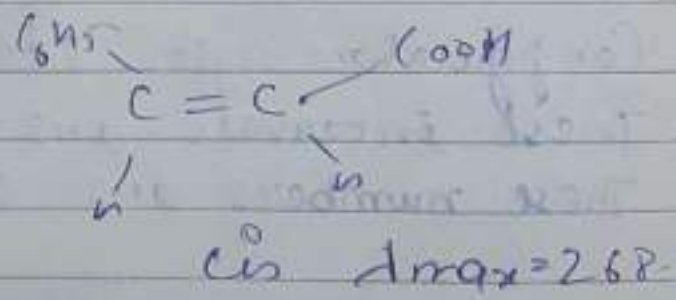 C6H5 COOH
C = C
H H
cis λmax = 268